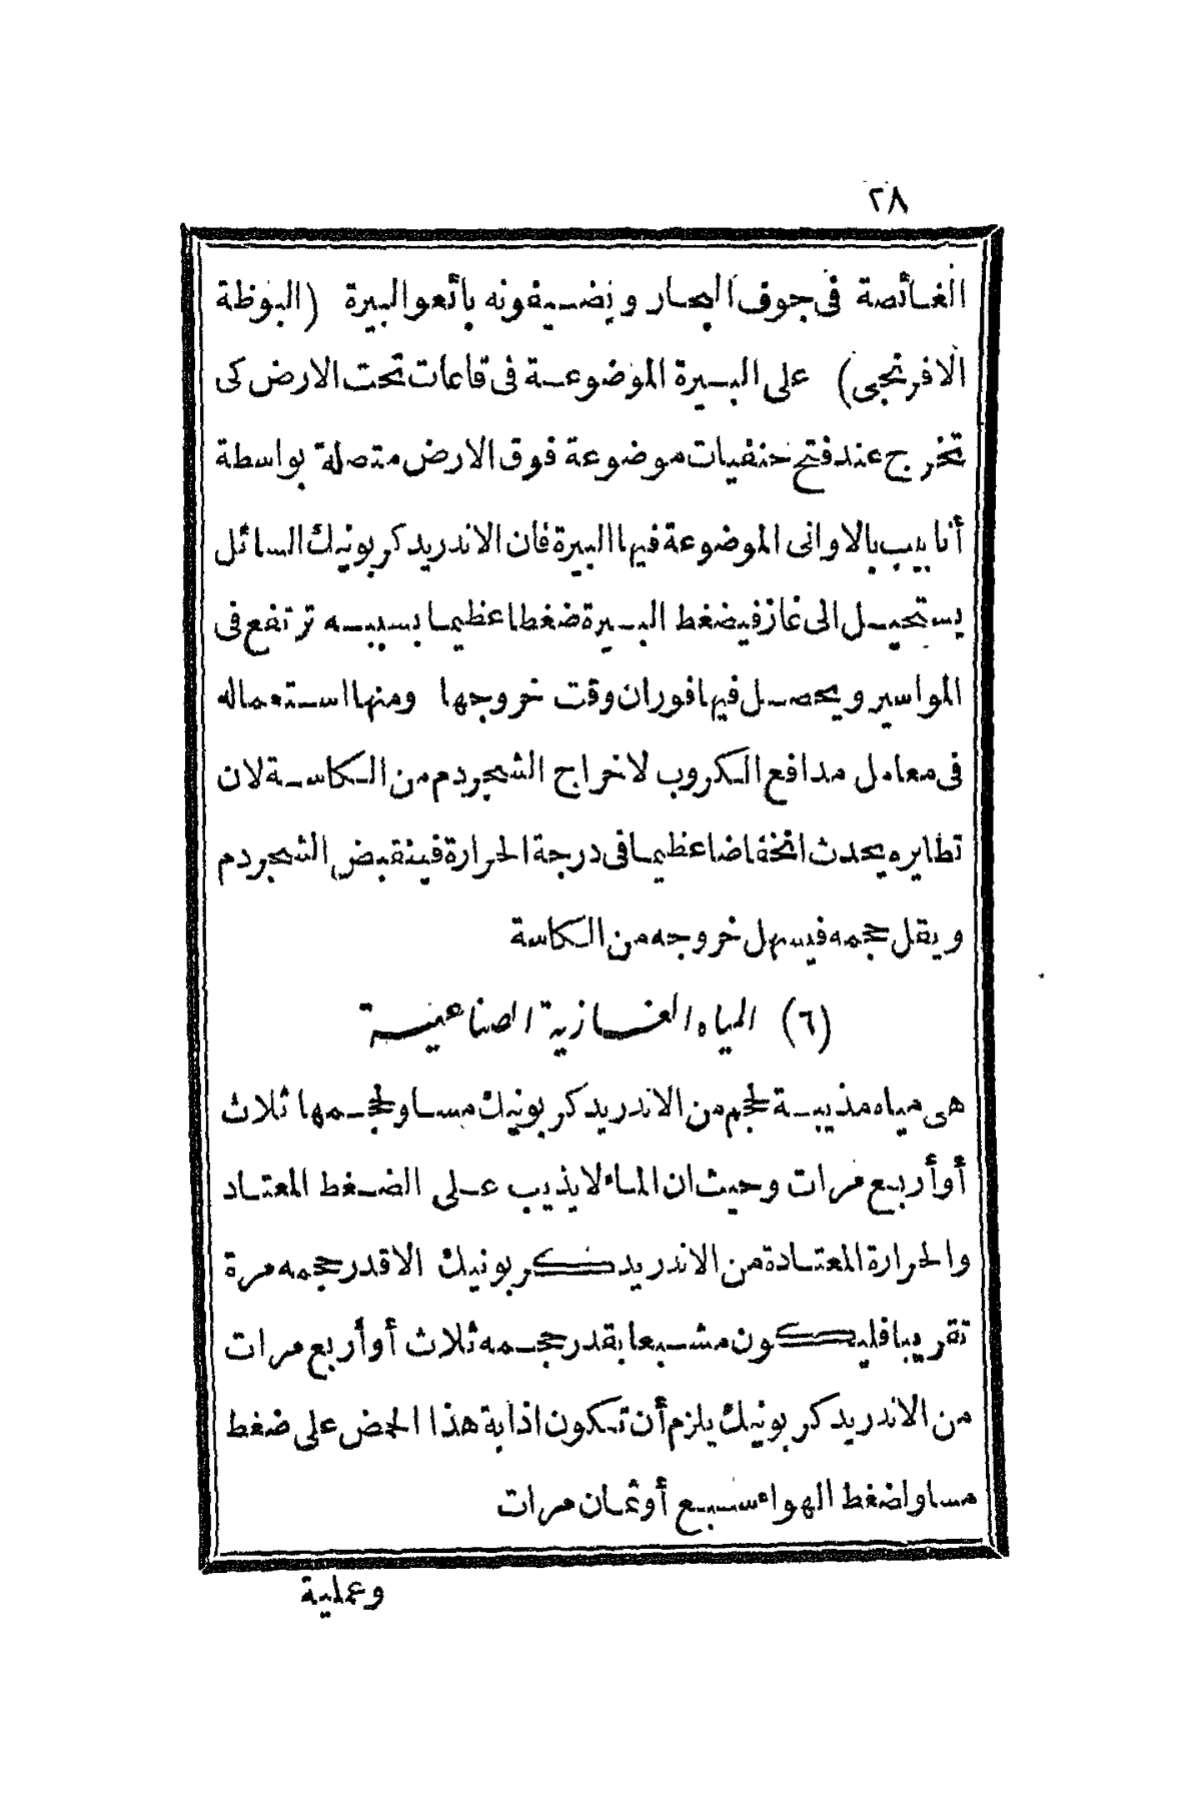 ٢٨
الغائصة فى جوف البحار ويضيفونه بائعو البيرة (البوظة
الافرنجى) على البيرة الموضوعة فى قاعات تحت الارض كى
تخرج عند فتح حنفيات موضوعة فوق الارض متصلة بواسطة
أنابيب بالاوانى الموضوعة فيها البيرة فان الاندريد كربونيك السائل
يستحيل الى غاز فيضغط البيرة ضغطا عظيما بسببه ترتفع فى
المواسير ويحصل فيها فوران وقت خروجها ومنها استعماله
فى معامل مدافع الكروب لاخراج الشجردم من الكاسة لان
تطايره يحدث انخفاضا عظيما فى درجة الحرارة فينقبض الشجردم
ويقل حجمه فيسهل خروجه من الكاسة
(٦) المياه الغازية الصناعية
هى مياه مذيبة لحجم من الاندريد كربونيك مساو لحجمها ثلاث
أو أربع مرات وحيث ان الماء لا يذيب على الضغط المعتاد
والحرارة المعتادة من الاندريد كربونيك الا قدر حجمه مرة
تقريبا فليكون مشبعا بقدر حجمه ثلاث أو أربع مرات
من الاندريد كربونيك يلزم أن تكون اذابة هذا الحمض على ضغط
مساو لضغط الهواء سبع أو ثمان مرات
وعملية